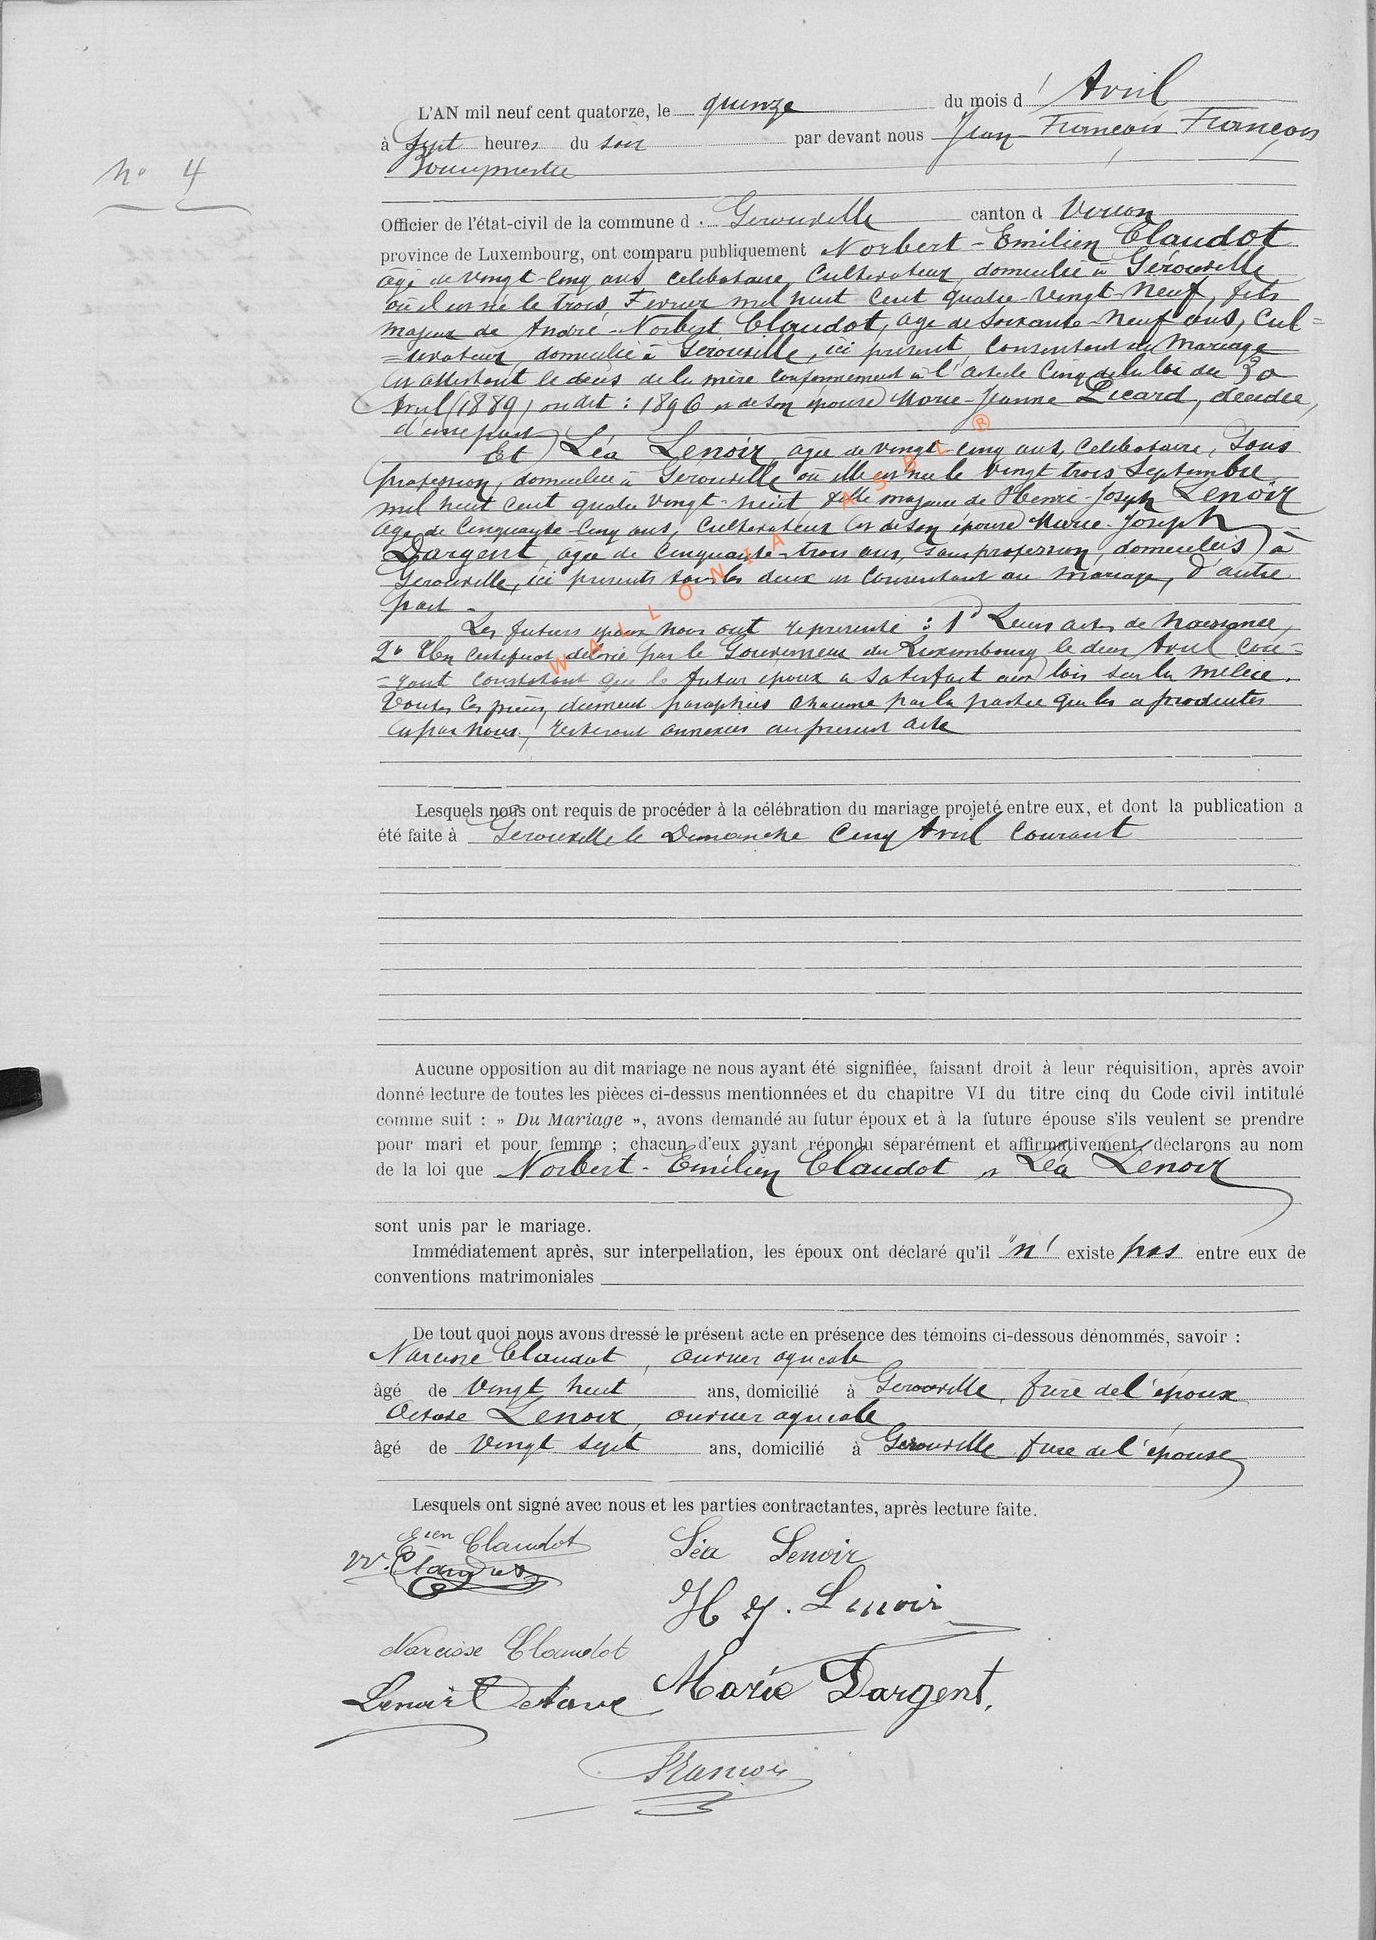 L'AN mil neuf cent quatorze, le quinze du mois d' Avril
à Sept heures du soir par devant nous Jean François François
N° 4
Bourgmestre
Officier de l'état-civil de la commune d. Gérouville canton d. Virton
province de Luxembourg, ont comparu publiquement Norbert-Emilien Claudot
âgé de vingt-cinq ans, célibataire, cultivateur, domicilié à Gérouville
où il est né le trois Février mil huit cent quatre-vingt-neuf, fils
majeur de André-Norbert Claudot, âgé de soixante-neuf ans, cul=
=tivateur, domicilié à Gérouville, ici présent, consentant au mariage
et attestant le décès de la mère conformément à l'article cinq de la loi du 30
Avril (1889) ou dit : 1896 et de son épouse Marie-Jeanne Licard, décédée,
d'une part
Et Léa Lenoir, âgée de vingt-cinq ans, célibataire, sans
profession, domiciliée à Gérouville où elle est née le vingt trois Septembre
mil huit cent quatre vingt-huit fille majeure de Henri-Joseph Lenoir
âgé de cinquante-cinq ans, cultivateur et de son épouse Marie-Joseph
Dargent, âgée de cinquante-trois ans, sans profession, domiciliés à
Gérouville, ici présents tous les deux et consentant au mariage, d'autre
part.
Les futurs époux nous ont représenté : 1° Leurs actes de naissance,
2° Un certificat délivré par le Gouverneur du Luxembourg le deux Avril cou=
=rant constatant que le futur époux a satisfait aux lois sur la milice.
Toutes ces pièces, dûment paraphées chacune par la partie qui les a produites
et par nous, resteront annexées au présent acte
WALLONIA ASBL ®
Lesquels nous ont requis de procéder à la célébration du mariage projeté entre eux, et dont la publication a
été faite à Gérouville le Dimanche cinq Avril courant
Aucune opposition au dit mariage ne nous ayant été signifiée, faisant droit à leur réquisition, après avoir
donné lecture de toutes les pièces ci-dessus mentionnées et du chapitre VI du titre cinq du Code civil intitulé
comme suit : » Du Mariage », avons demandé au futur époux et à la future épouse s'ils veulent se prendre
pour mari et pour femme ; chacun d'eux ayant répondu séparément et affirmativement, déclarons au nom
de la loi que Norbert-Emilien Claudot et Léa Lenoir
sont unis par le mariage.
Immédiatement après, sur interpellation, les époux ont déclaré qu'il "n' existe pas entre eux de
conventions matrimoniales
De tout quoi nous avons dressé le présent acte en présence des témoins ci-dessous dénommés, savoir :
Narcisse Claudot, ouvrier agricole
âgé de vingt huit ans, domicilié à Gérouville, frère de l'époux
Octave Lenoir, ouvrier agricole
âgé de vingt sept ans, domicilié à Gérouville frère de l'épouse
Lesquels ont signé avec nous et les parties contractantes, après lecture faite.
Eien Claudot Léa Lenoir
N. Claudot
H J. Lenoir
Narcisse Claudot
Lenoir Octave Marie Dargent.
François